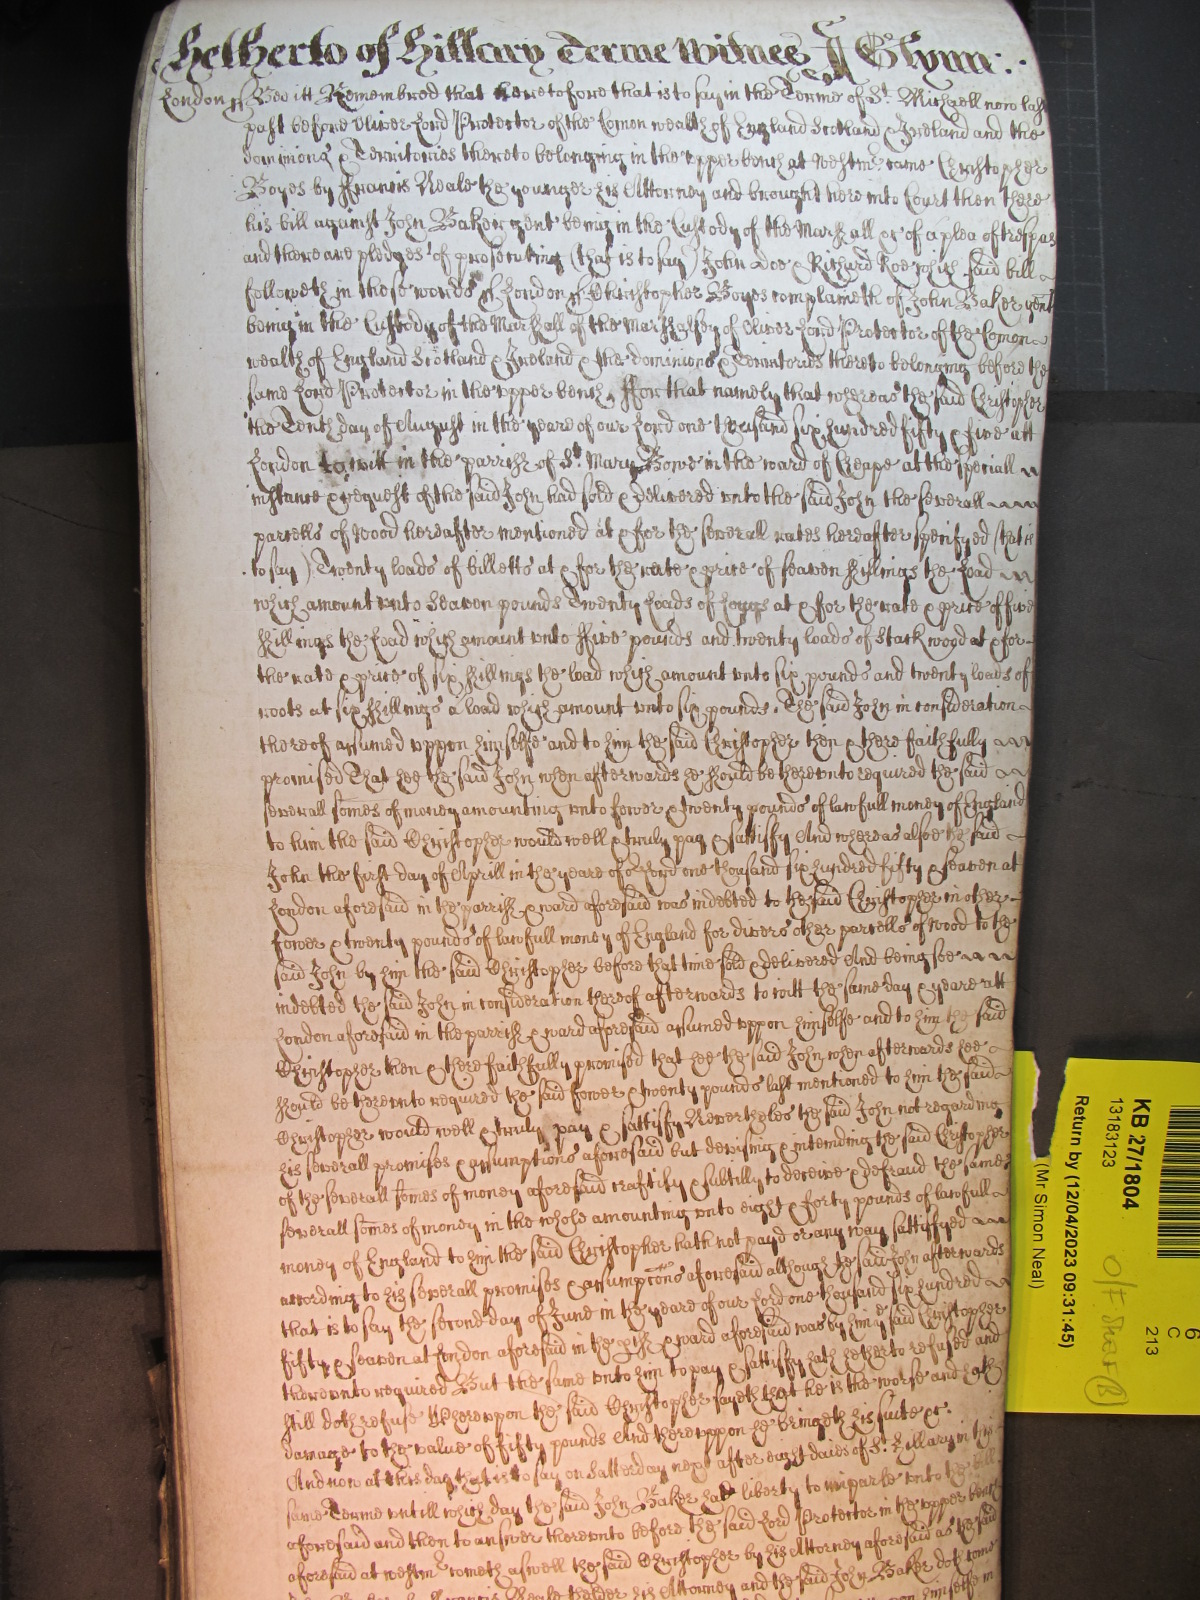 Hetherto of Hillary Terme Witnes J Glynn:
London ss Bee itt Remembred that heretofore that is to say in the Terme of St. Michaell now last
past before Oliver Lord Protector of the Comon wealth of England Scotland & Ireland and the
dominions & Territories thereto belonging in the upper bench at Westmr. came Christopher
Boyes by Francis Neale the younger his Attorney and brought here into Court then there
his bill against John Baker gent being in the Custody of the Marshall &c of a plea of trespas
and there are pledges of prosecuting (that is to say) John Doe & Richard Roe which said bill
followeth in these words ss London ss Christopher Boyes complaineth of John Baker gent
being in the Custody of the Marshall of the Marshalsey of Oliver Lord Protector of the Comon
wealth of England Scotland & Ireland & the dominions & Territories thereto belonging before the
same Lord Protector in the upper bench, ffor that namely that whereas the said Christopher
the Tenth day of August in the yeare of our Lord one thousand six hundred fifty & five att
London to witt in the parrish of St. Mary Bowe in the ward of Cheape at the speciall
instance & request of the said John had sold & delivered unto the said John the severall
parcells of Wood hereafter mentioned at & for the severall rates hereafter specifyed (that is
to say) Twenty loads of billetts at & for the rate & price of seaven shillings the Load
which amount unto Seaven pounds Twenty Loads of at & for the rate & price of five
shillings the Load which amount unto ffive pounds and twenty loads of Stack wood at & for
the rate & price of six shillings the load which amount unto six pounds and twenty loads of
roots at six shillings a load which amount unto six pounds. The said John in consideration
thereof assumed uppon himselfe and to him the said Christopher then & there faithfully
promised That hee the said John when afterwards he should be thereunto required the said
severall somes of money amounting unto fower & twenty pounds of lawfull money of England
to him the said Christopher would well & truly pay & sattisfy And whereas alsoe the said
John the first day of Aprill in the yeare of or Lord one thousand six hundred fifty & seaven at
London aforesaid in the parrish & ward aforesaid was indebted to the said Christopher in other
fower & twenty pounds of lawfull money of England for divers other parcells of Wood to the
said John by him the said Christopher before that time sold & delivered And being soe
indebted the said John in consideration thereof afterwards to witt the same day & yeare att
London aforesaid in the parrish & ward aforesaid assumed uppon himselfe and to him the said
Christopher then & there faithfully promised that hee the said John when afterwards hee
should be thereunto required the said fower & twenty pounds last mentioned to him the said
Christopher would well & truly pay & sattisfy Neverthelesthe said John not regarding
his severall promises & assumptions aforesaid but devising & intending the said Christopher
of the severall somes of money aforesaid craftily & subtilly to deceive & defraud the same
severall somes of money in the whole amounting unto eight & forty pounds of lawfull
money of England to him the said Christopher hath not payd or any way sattisfyed
according to his severall promises & assumptons aforesaid although the said John afterwards
that is to say the second day of June in the yeare of our Lord one thousand six hundred
fifty & seaven at London aforesaid in the pish & ward aforesaid was by him ye said Christopher
thereunto required But the same unto him to pay & sattisfy hath hetherto refused and
still doth refuse Whereuppon the said Christopher sayeth that he is the worse and hath
damage to the value of fifty pounds And thereuppon he bringeth his suite &c.
And now at this day that is to say on Satterday next after eight daies of St. Hillary in this
same Terme untill which day the said John Baker had liberty to imparle unto the bill
aforesaid and then to answer thereunto before the said Lord Protector in the upper bench
aforesaid at westmr. cometh aswell the said Christopher by his Attorney aforesaid as the said
Neale the elder his Attorney and the said John Baker doth come
himselfe in
KB 27/1804
13183123
Return by (12/04/2023 09:31:45)
(Mr Simon Neal)
6
C
213